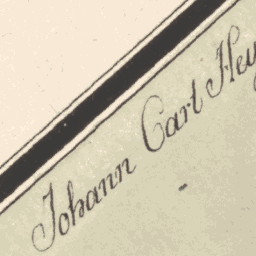 Johann Carl Hey